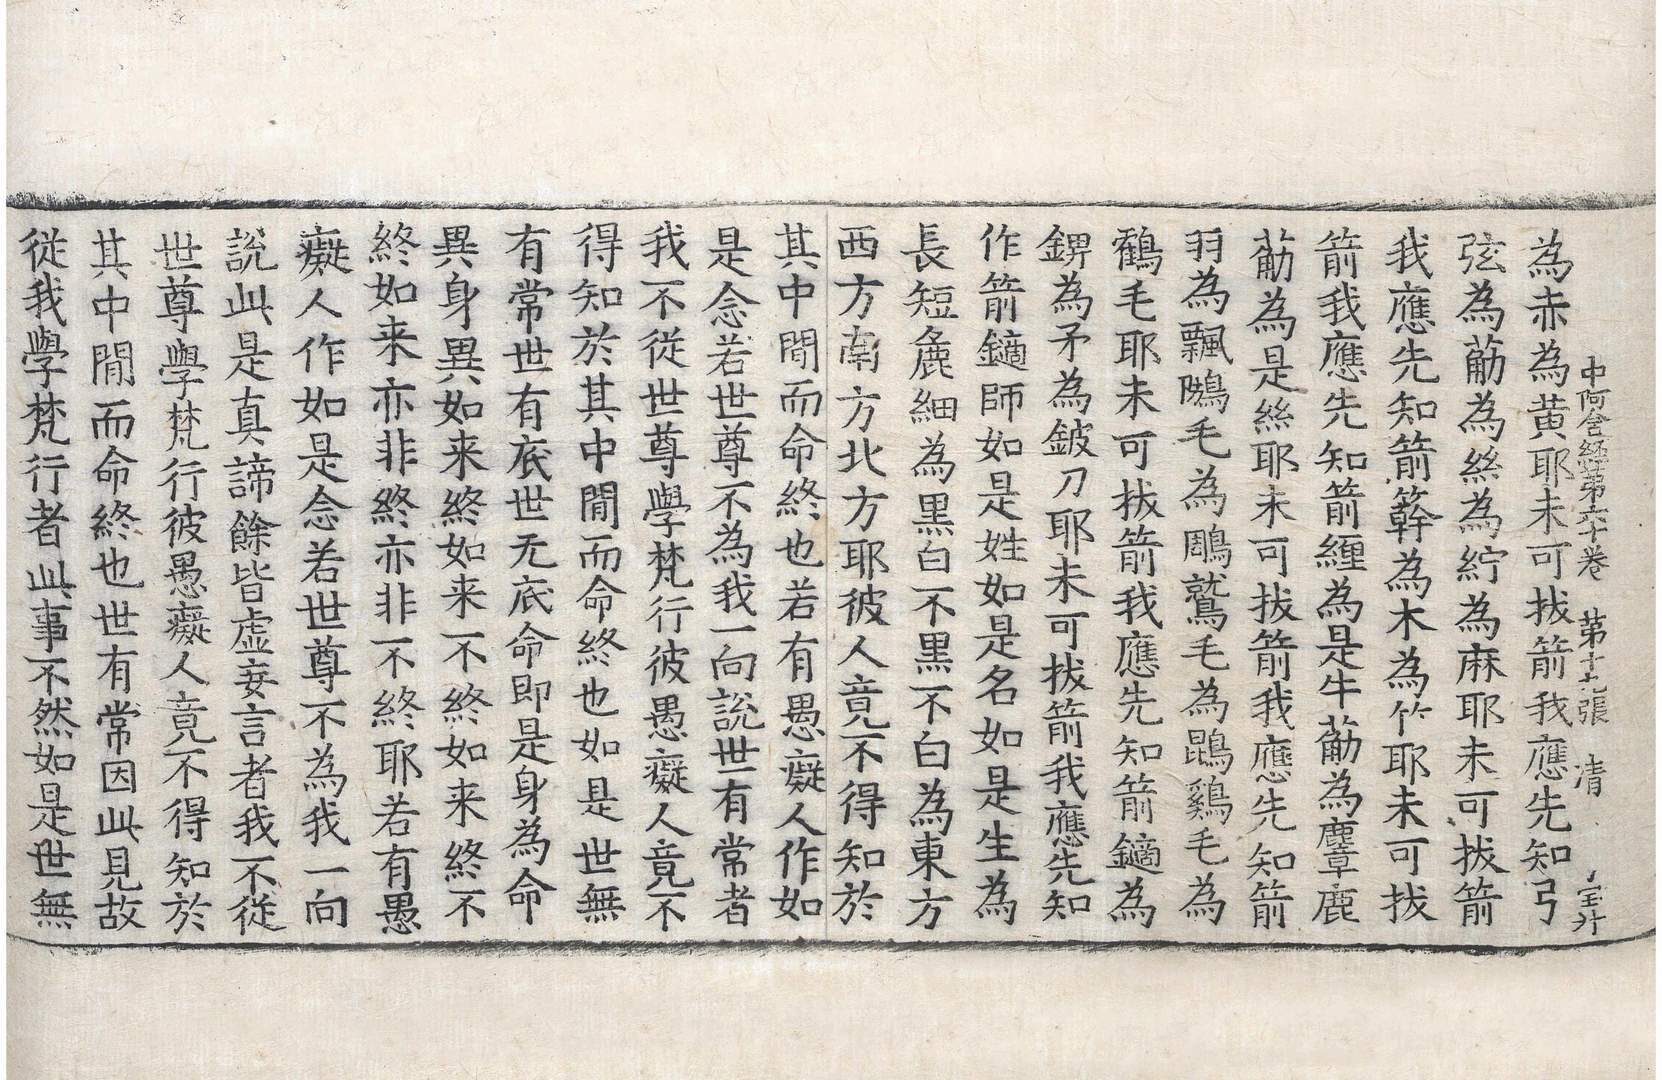 中阿含經第六十卷 第十七張 清
為赤為黃耶未可拔箭我應先知弓
弦為荕為絲為紵為麻耶未可拔箭
我應先知箭簳為木為竹耶未可拔
箭我應先知箭纏為是牛荕為麞鹿
荕為是絲耶未可拔箭我應先知箭
羽為飄鵰毛為鵰鷲毛為鵾鷄毛為
鶴毛耶未可拔箭我應先知箭鏑為
錍為矛為鈹刀耶未可拔箭我應先知
作箭鏑師如是姓如是名如是生為
長短麁細為黑白不黑不白為東方
西方南方北方耶彼人竟不得知於
其中間而命終也若有愚癡人作如
是念若世尊不為我一向說世有常者
我不從世尊學梵行彼愚癡人竟不
得知於其中間而命終也如是世無
有常世有底世无底命即是身為命
異身異如来終如来不終如来終不
終如来亦非終亦非不終耶若有愚
癡人作如是念若世尊不為我一向
說此是真諦餘皆虛妄言者我不從
世尊學梵行彼愚癡人竟不得知於
其中間而命終也世有常因此見故
從我學梵行者此事不然如是世無